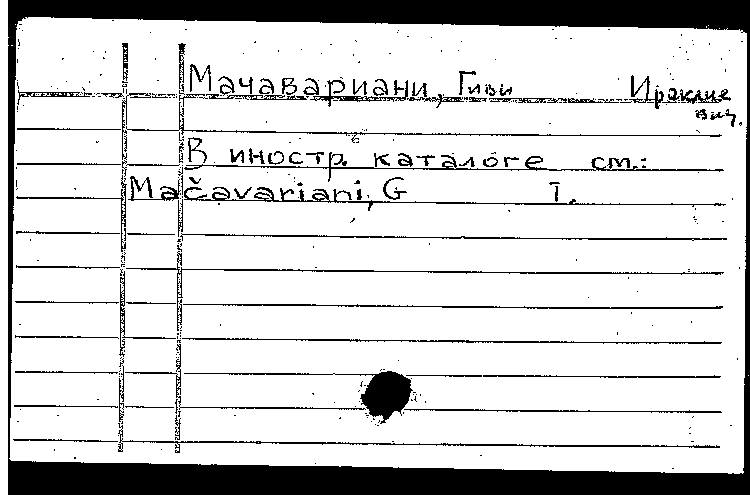 Мачавариани, Гиви Ираклие
вич.
В иностр. каталоге см.:
Mačavariani, G I.